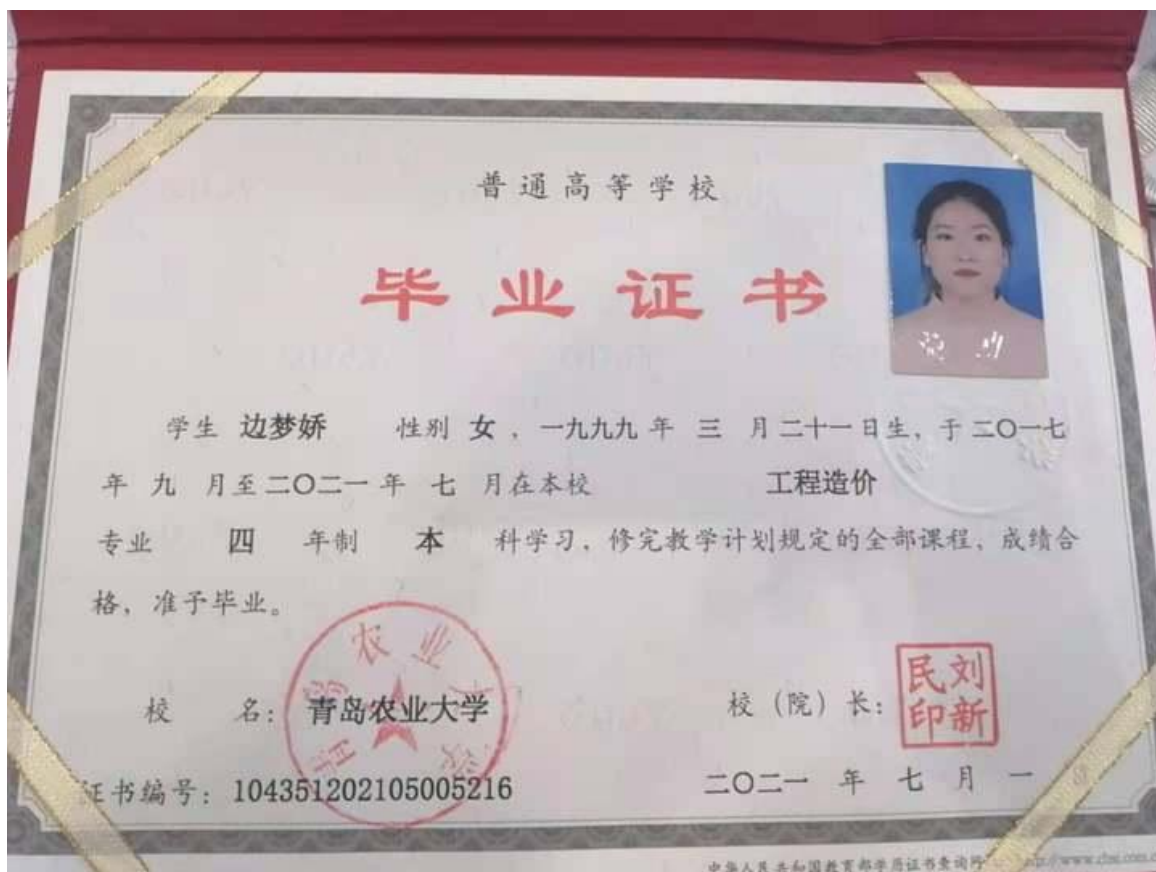 普通高等学校
毕业证书
学生 边梦娇 性别 女，一九九九年 三 月二十一日生，于二〇一七
年 九 月至二〇二一年 七 月在本校 工程造价
专业 四 年制 本 科学习，修完教学计划规定的全部课程，成绩合
格，准予毕业。
青岛农业大学
校 名：青岛农业大学 校（院）长：
刘新民印
证书编号：104351202105005216 二〇二一 年 七 月 一
中华人民共和国教育部学历证书查询网